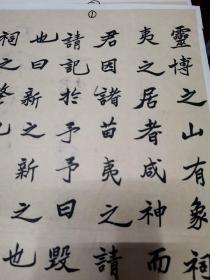 ①
靈博之山有象祠
夷之居者咸神而
君因諸苗夷之請
請記於予予曰毀
也曰新之新之也
祠之